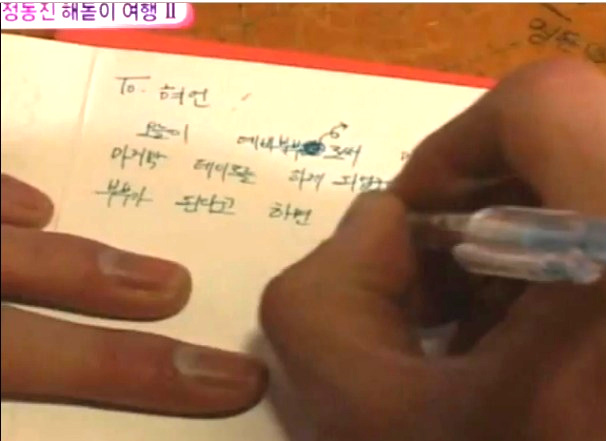 정동진 해돋이 여행 II
To. 혀언
오늘이 예비부부로써 마
마지막 데이트를 하게 되었구
부부가 된다고 하면